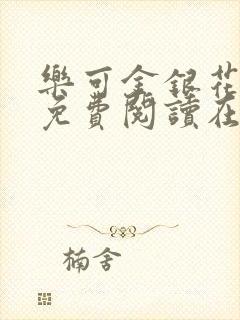 樂可金銀花
免費閱讀在
楠舍